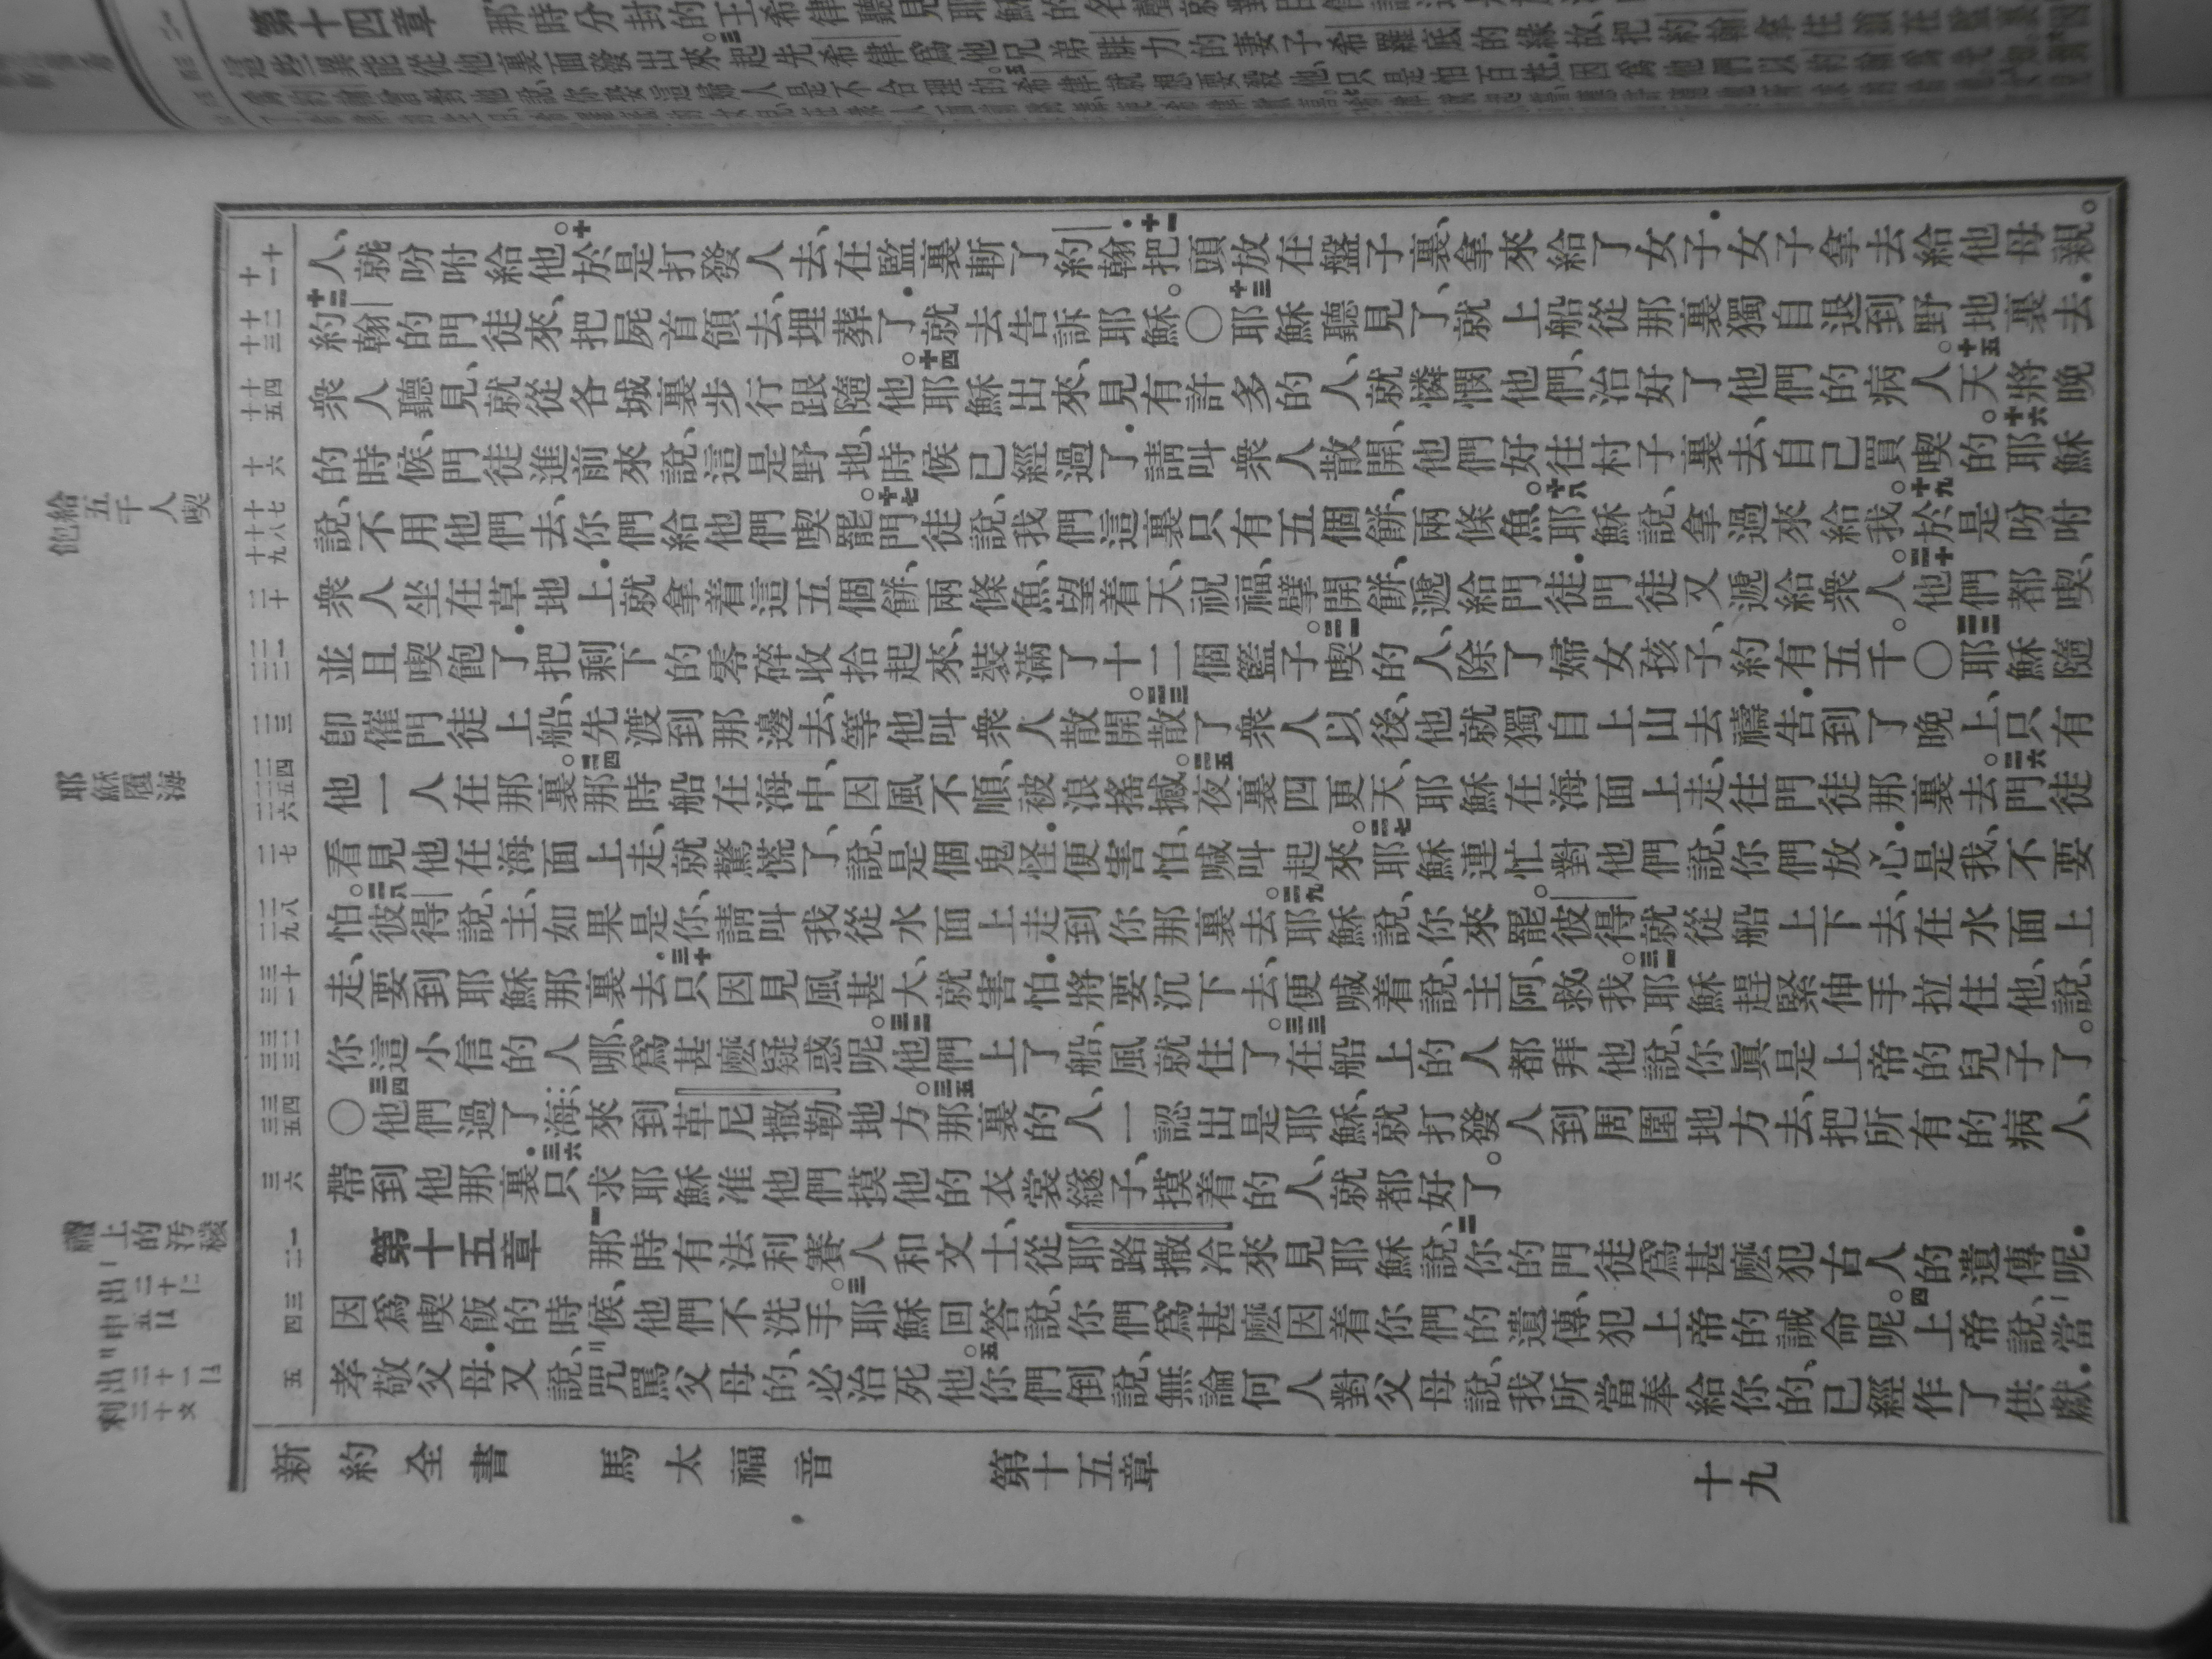 第十四章
人、就吩咐給他。十於是打發人去、在監裏斬了約翰.十一把頭放在盤子裏、拿來給了女子.女子拿去給他母親。
十二約翰的門徒來、把屍首領去、埋葬了.就去告訴耶穌。〇十三耶穌聽見了、就上船從那裏獨自退到野地裏去.
衆人聽見、就從各城裏步行跟隨他。十四耶穌出來、見有許多的人、就憐憫他們、治好了他們的病人。十五天將晚
的時候、門徒進前來說、這是野地、時候已經過了.請叫衆人散開、他們好往村子裏去、自己買喫的。十六耶穌
說、不用他們去、你們給他們喫罷。十七門徒說、我們這裏只有五個餅、兩條魚。十八耶穌說、拿過來給我。十九於是吩咐
衆人坐在草地上.就拿着這五個餅、兩條魚、望着天、祝福、擘開餅、遞給門徒.門徒又遞給衆人。二十他們都喫、
並且喫飽了.把剩下的零碎收拾起來、裝滿了十二個籃子。二一喫的人、除了婦女孩子、約有五千。〇二二耶穌隨
卽催門徒上船、先渡到那邊去、等他叫衆人散開。二三散了衆人以後、他就獨自上山去禱告.到了晚上、只有
他一人在那裏。二四那時船在海中、因風不順、被浪搖撼。二五夜裏四更天、耶穌在海面上走、往門徒那裏去。二六門徒
看見他在海面上走、就驚慌了、說、是個鬼怪.便害怕、喊叫起來。二七耶穌連忙對他們說、你們放心.是我、不要
怕。二八彼得說、主、如果是你、請叫我從水面上走到你那裏去。二九耶穌說、你來罷。彼得就從船上下去、在水面上
走、要到耶穌那裏去.三十只因見風甚大、就害怕.將要沉下去、便喊着說、主阿、救我。三一耶穌趕緊伸手拉住他、說、
你這小信的人哪、爲甚麽疑惑呢。三二他們上了船、風就住了。三三在船上的人都拜他說、你眞是上帝的兒子了。
〇三四他們過了海、來到革尼撒勒地方。三五那裏的人、一認出是耶穌、就打發人到周圍地方去、把所有的病人、
帶到他那裏.三六只求耶穌准他們摸他的衣裳繸子、摸着的人、就都好了。
第十五章 一那時有法利賽人和文士、從耶路撒冷來見耶穌說、二你的門徒爲甚麽犯古人的遺傳呢.
因爲喫飯的時候、他們不洗手。三耶穌回答說、你們爲甚麽因着你們的遺傳、犯上帝的誡命呢。四上帝說、當
孝敬父母.又說、咒罵父母的、必治死他。五你們倒說、無論何人對父母說、我所當奉給你的、已經作了供獻.
給五千人喫飽
耶穌履海
新約全書 馬太福音 第十五章 十九